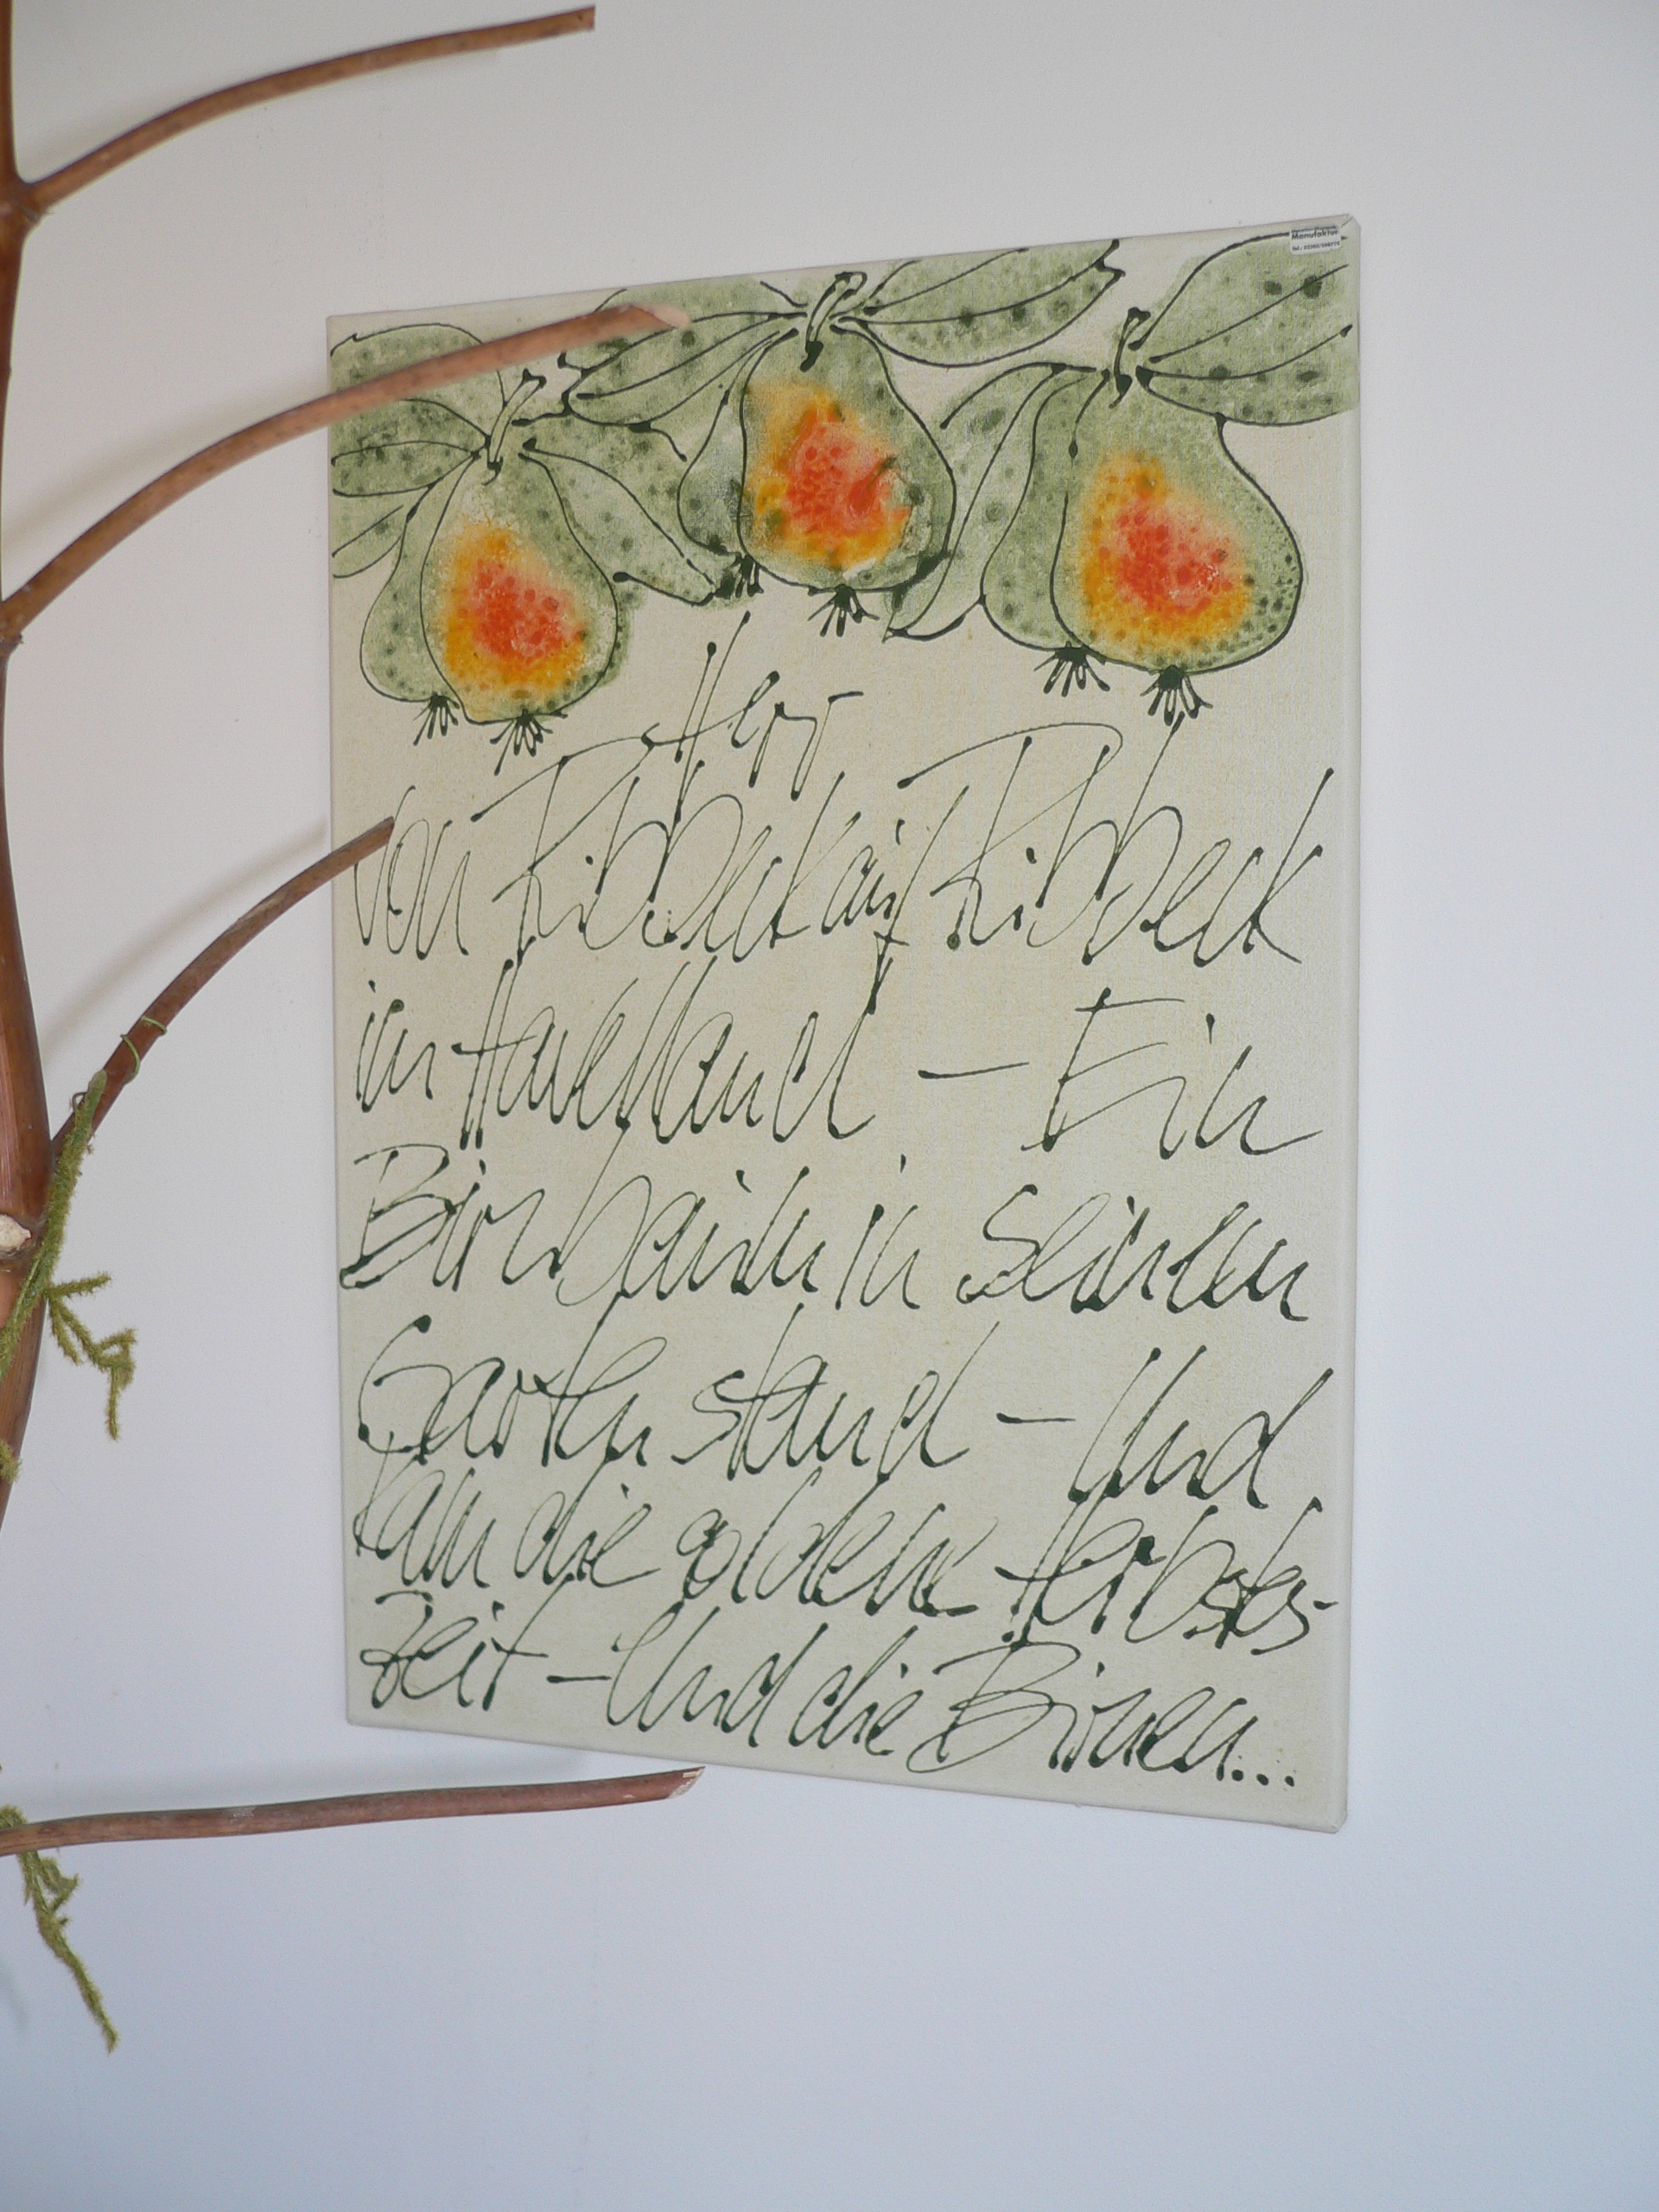 Manufaktur
Herr
von Ribbeck auf Ribbeck
im Havelland – Ein
Birnbaum in seinem
Garten stand – Und
kam die goldene Herbstes-
Zeit – Und die Birnen...